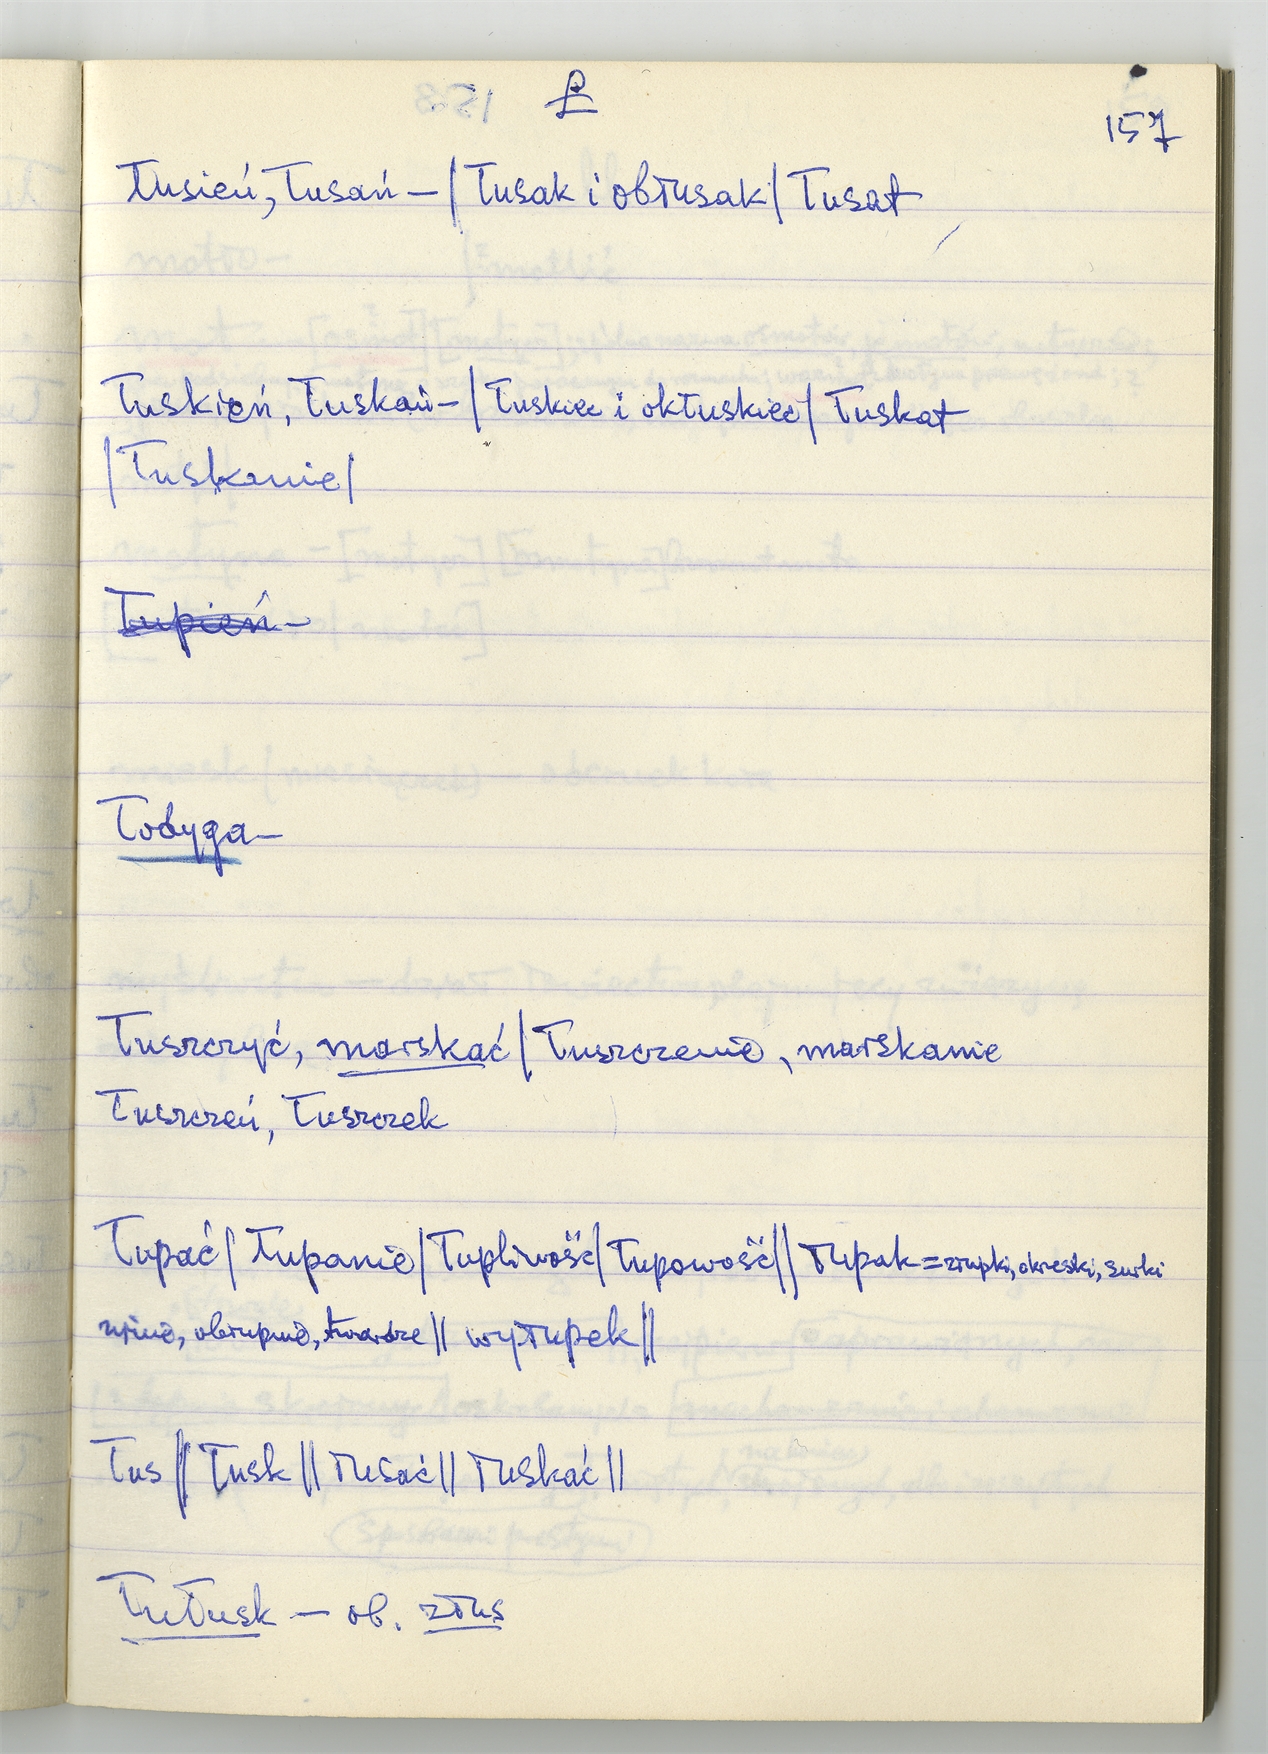 Ł
157
Łusień, Łusań – / Łusak i obłusak / Łusat
Łuskień, Łuskań – / Łuskiec i okłuskiec / Łuskat
/ Łuskanie /
Łupień –
Łodyga –
Łuszczyć, marskać / Łuszczenie, marskanie
Łuszczeń, Łuszczek
Łupać / Łupanie / Łupliwość / Łupowość // Łupak = złupki, okreski, surki
obłupnie, twardze // wyłupek //
Łus // Łusk // Łusać // Łuskać //
Łutusk – ob. złus